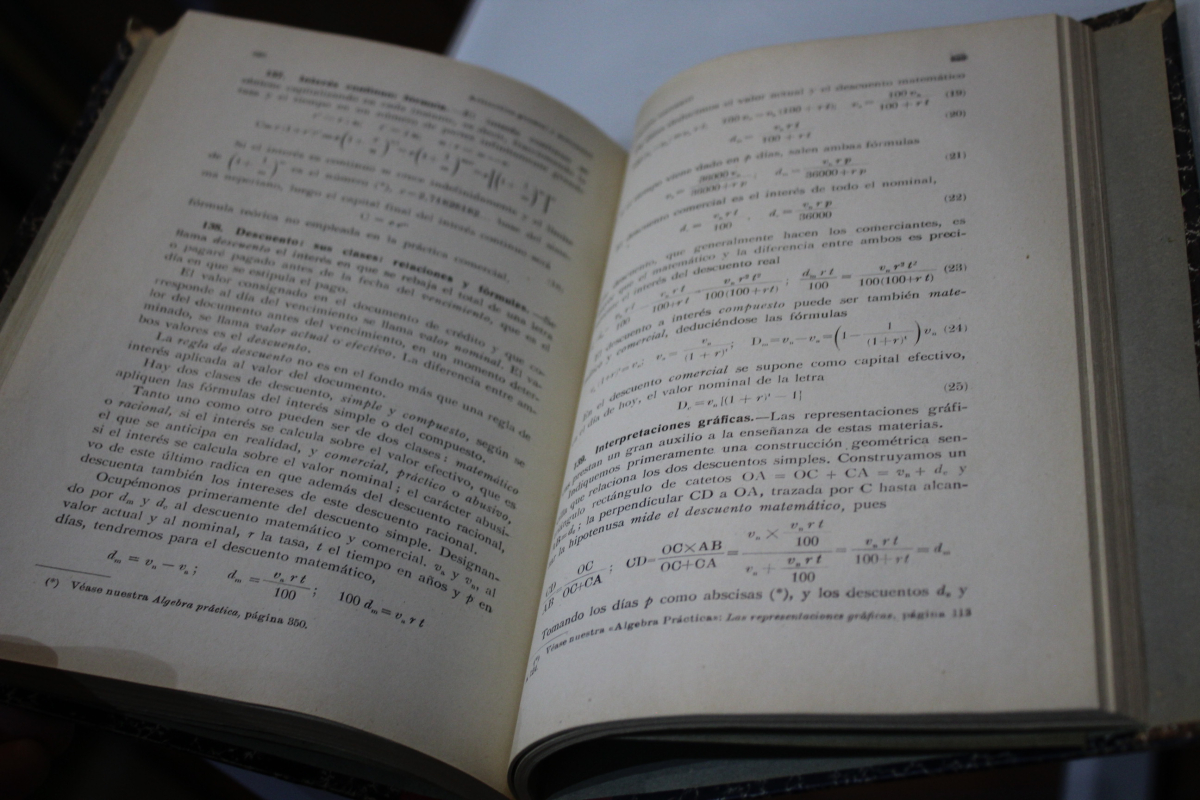 137. Interés continuo: fórmula.—El interés continuo se
obtiene capitalizando en cada
tasa y el tiempo en un número de partes infinitamente grande
Si el interés es continuo n crece indefinidamente y el límite
de (1 + 1/n)ⁿ es el número (*), e = 2,71828182... base del siste-
ma neperiano, luego el capital final del interés continuo será
fórmula teórica no empleada en la práctica comercial.
138. Descuento: sus clases: relaciones y fórmulas.—Se
llama descuento el interés en que se rebaja el total de una letra
o pagaré pagado antes de la fecha del vencimiento, que es el
día en que se estipula el pago.
El valor consignado en el documento de crédito y que co-
rresponde al día del vencimiento se llama valor nominal. El va-
lor del documento antes del vencimiento, en un momento deter-
minado, se llama valor actual o efectivo. La diferencia entre am-
bos valores es el descuento.
La regla de descuento no es en el fondo más que una regla de
interés aplicada al valor del documento.
Hay dos clases de descuento, simple y compuesto, según se
apliquen las fórmulas del interés simple o del compuesto.
Tanto uno como otro pueden ser de dos clases: matemático
o racional, si el interés se calcula sobre el valor efectivo, que es
el que se anticipa en realidad, y comercial, práctico o abusivo,
si el interés se calcula sobre el valor nominal; el carácter abusi-
vo de este último radica en que además del descuento racional,
descuenta también los intereses de este descuento racional.
Ocupémonos primeramente del descuento simple. Designan-
do por dₘ y d꜀ al descuento matemático y comercial. vₐ y vₙ, al
valor actual y al nominal, r la tasa, t el tiempo en años y p en
días, tendremos para el descuento matemático,
dₘ = vₙ − vₐ; dₘ = vₐ r t / 100; 100 dₘ = vₐ r t
(*) Véase nuestra Algebra práctica, página 350.
deducimos el valor actual y el descuento matemático
vₐ = 100 vₙ / 100 + r t (19)
dₘ = vₙ r t / 100 + r t (20)
tiempo viene dado en p días, salen ambas fórmulas
vₐ = 36000 vₙ / 36000 + r p; dₘ = vₙ r p / 36000 + r p (21)
descuento comercial es el interés de todo el nominal,
d꜀ = vₙ r t / 100, d꜀ = vₙ r p / 36000 (22)
descuento, que generalmente hacen los comerciantes, es
que el matemático y la diferencia entre ambos es preci-
el interés del descuento real
vₙ r t / 100 − vₙ r t / 100 + r t = vₙ r² t² / 100(100 + r t); dₘ r t / 100 = vₙ r² t² / 100(100 + r t) (23)
El descuento a interés compuesto puede ser también mate-
y comercial, deduciéndose las fórmulas
vₐ = vₙ / (1 + r)ᵗ; Dₘ = vₙ − vₐ = (1 − 1 / (1 + r)ᵗ) vₙ (24)
En el descuento comercial se supone como capital efectivo,
el día de hoy, el valor nominal de la letra
D꜀ = vₙ [(1 + r)ᵗ − 1] (25)
139. Interpretaciones gráficas.—Las representaciones gráfi-
prestan un gran auxilio a la enseñanza de estas materias.
Indiquemos primeramente una construcción geométrica sen-
que relaciona los dos descuentos simples. Construyamos un
triángulo rectángulo de catetos OA = OC + CA = vₙ + d꜀ y
AB = d꜀; la perpendicular CD a OA, trazada por C hasta alcan-
la hipotenusa mide el descuento matemático, pues
CD / AB = OC / OC+CA; CD = OC×AB / OC+CA = (vₙ × vₙ r t / 100) / (vₙ + vₙ r t / 100) = vₙ r t / 100 + r t = dₘ
Tomando los días p como abscisas (*), y los descuentos d꜀ y
(*) Véase nuestra «Algebra Práctica»: Las representaciones gráficas, página 113